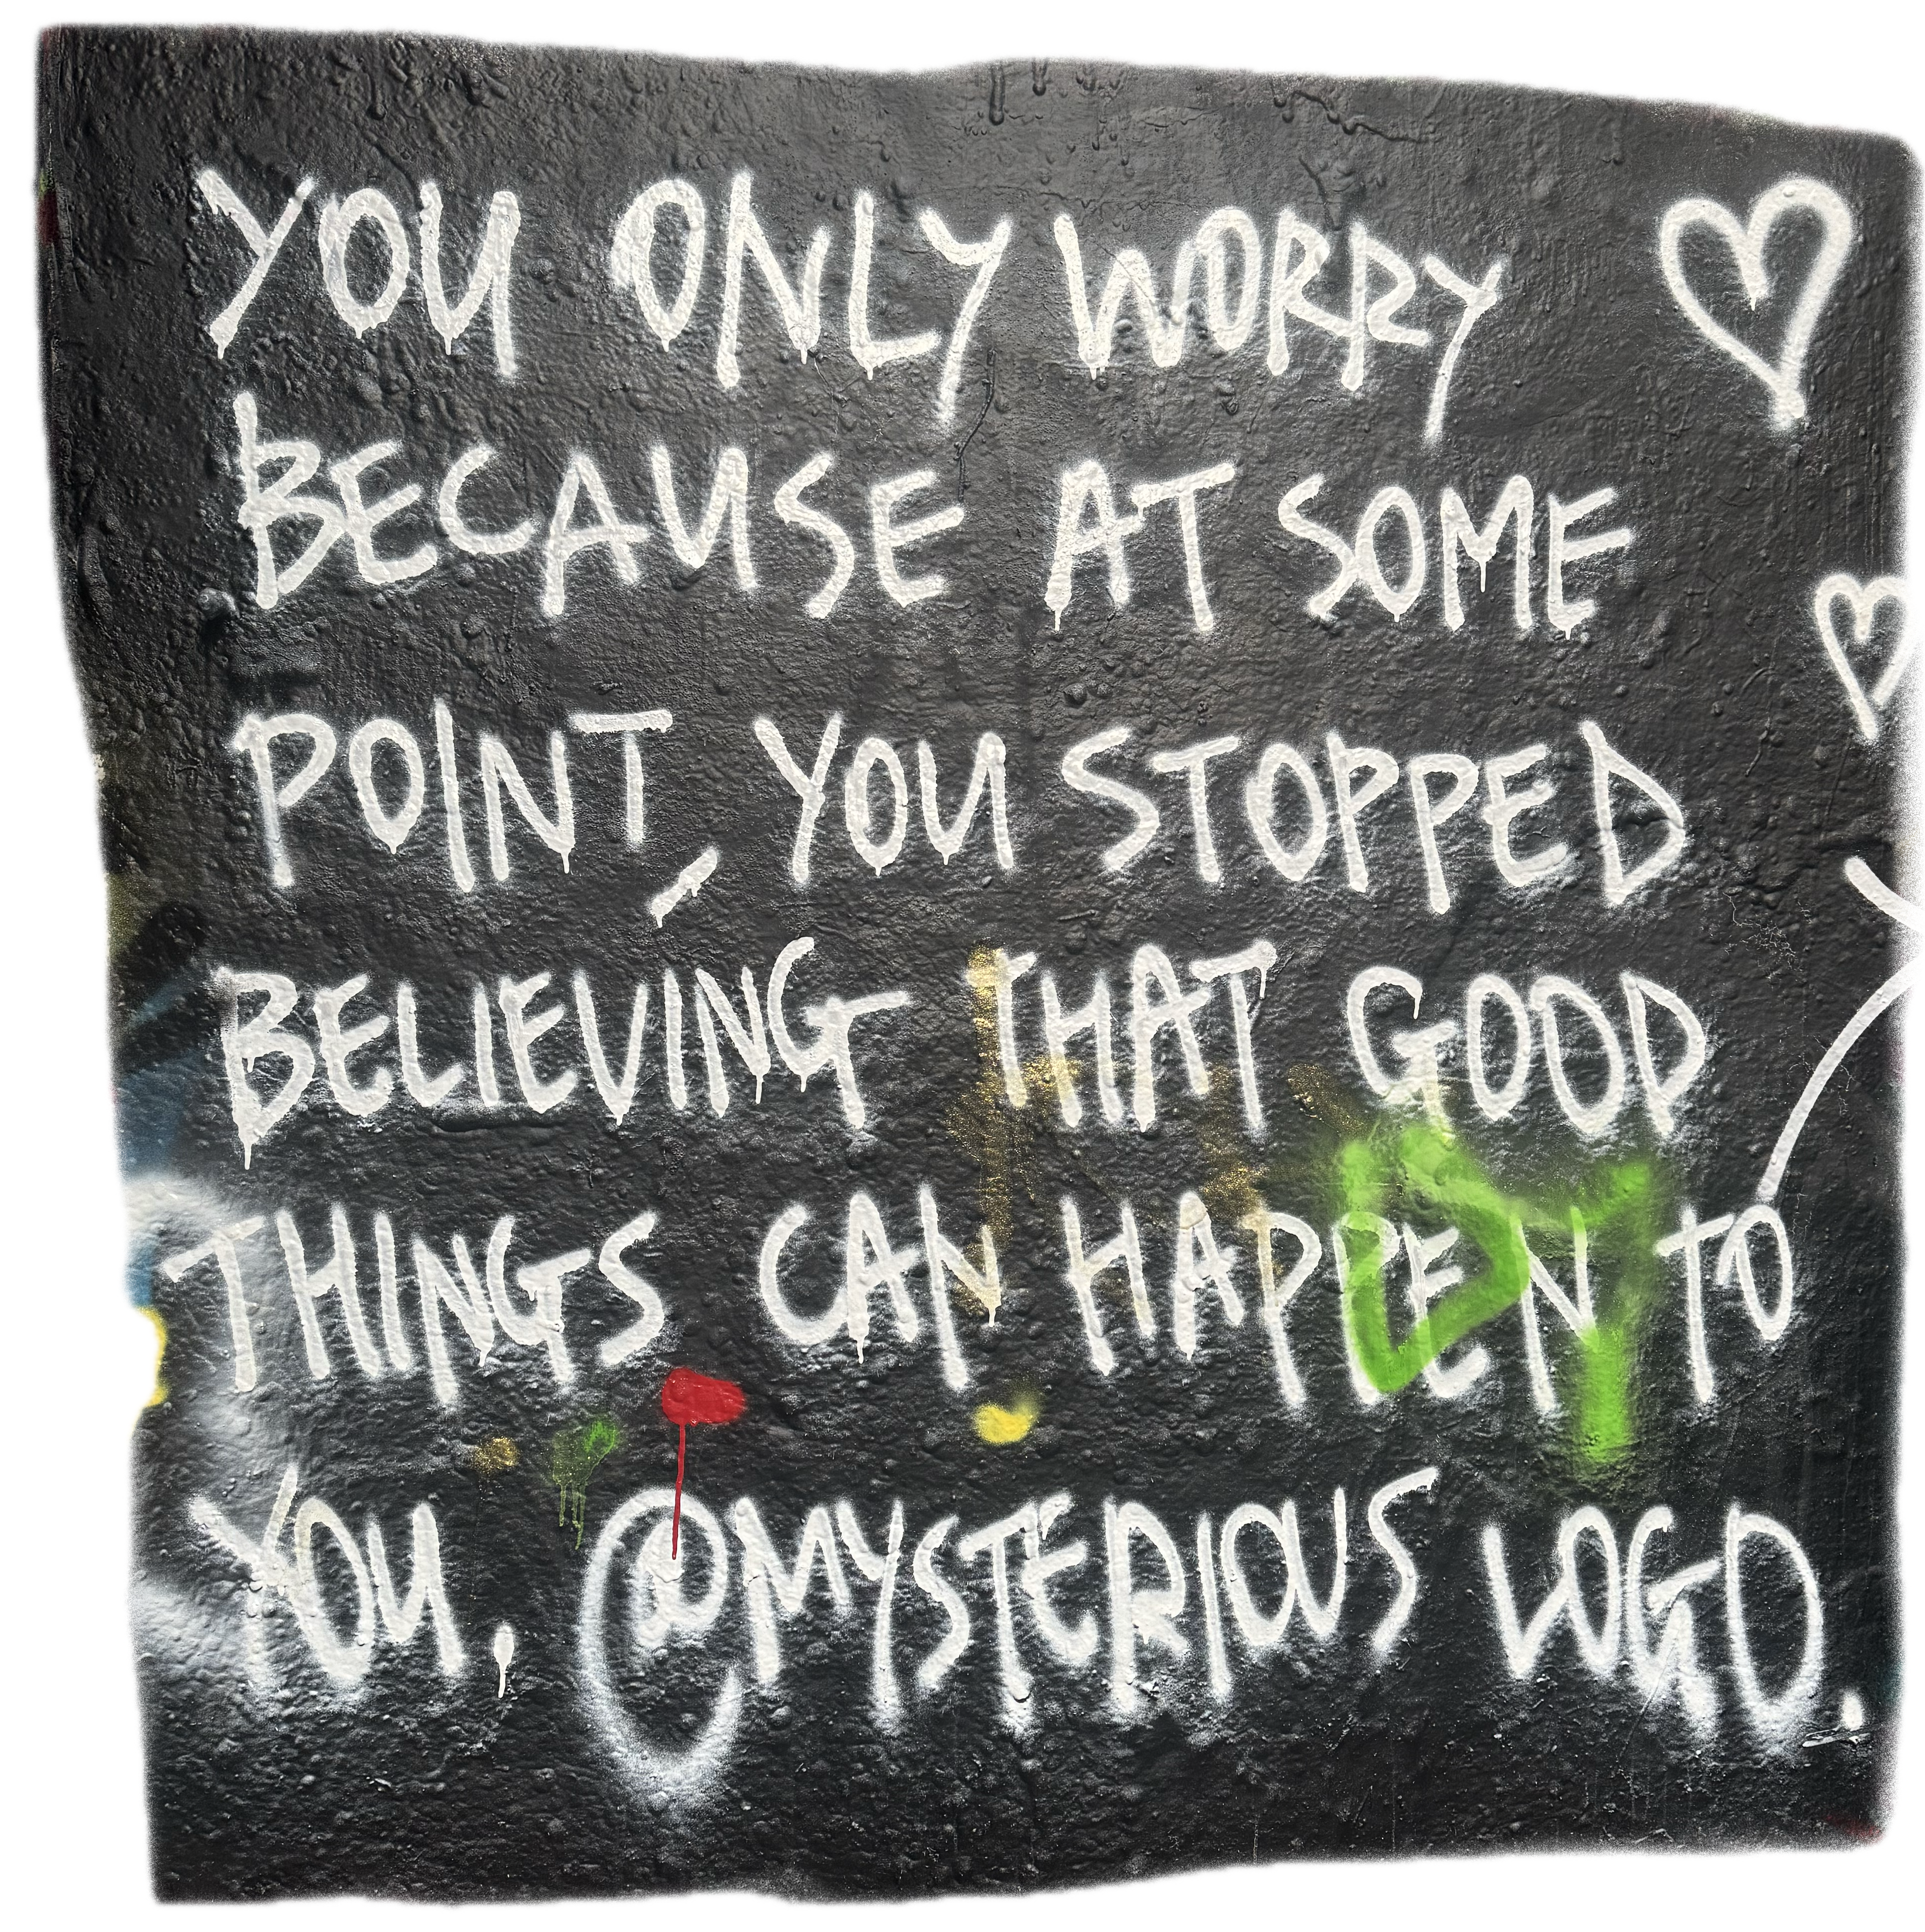 YOU ONLY WORRY
BECAUSE AT SOME
POINT, YOU STOPPED
BELIEVING THAT GOOD
THINGS CAN HAPPEN TO
YOU, @MYSTERIOUS LOGO.